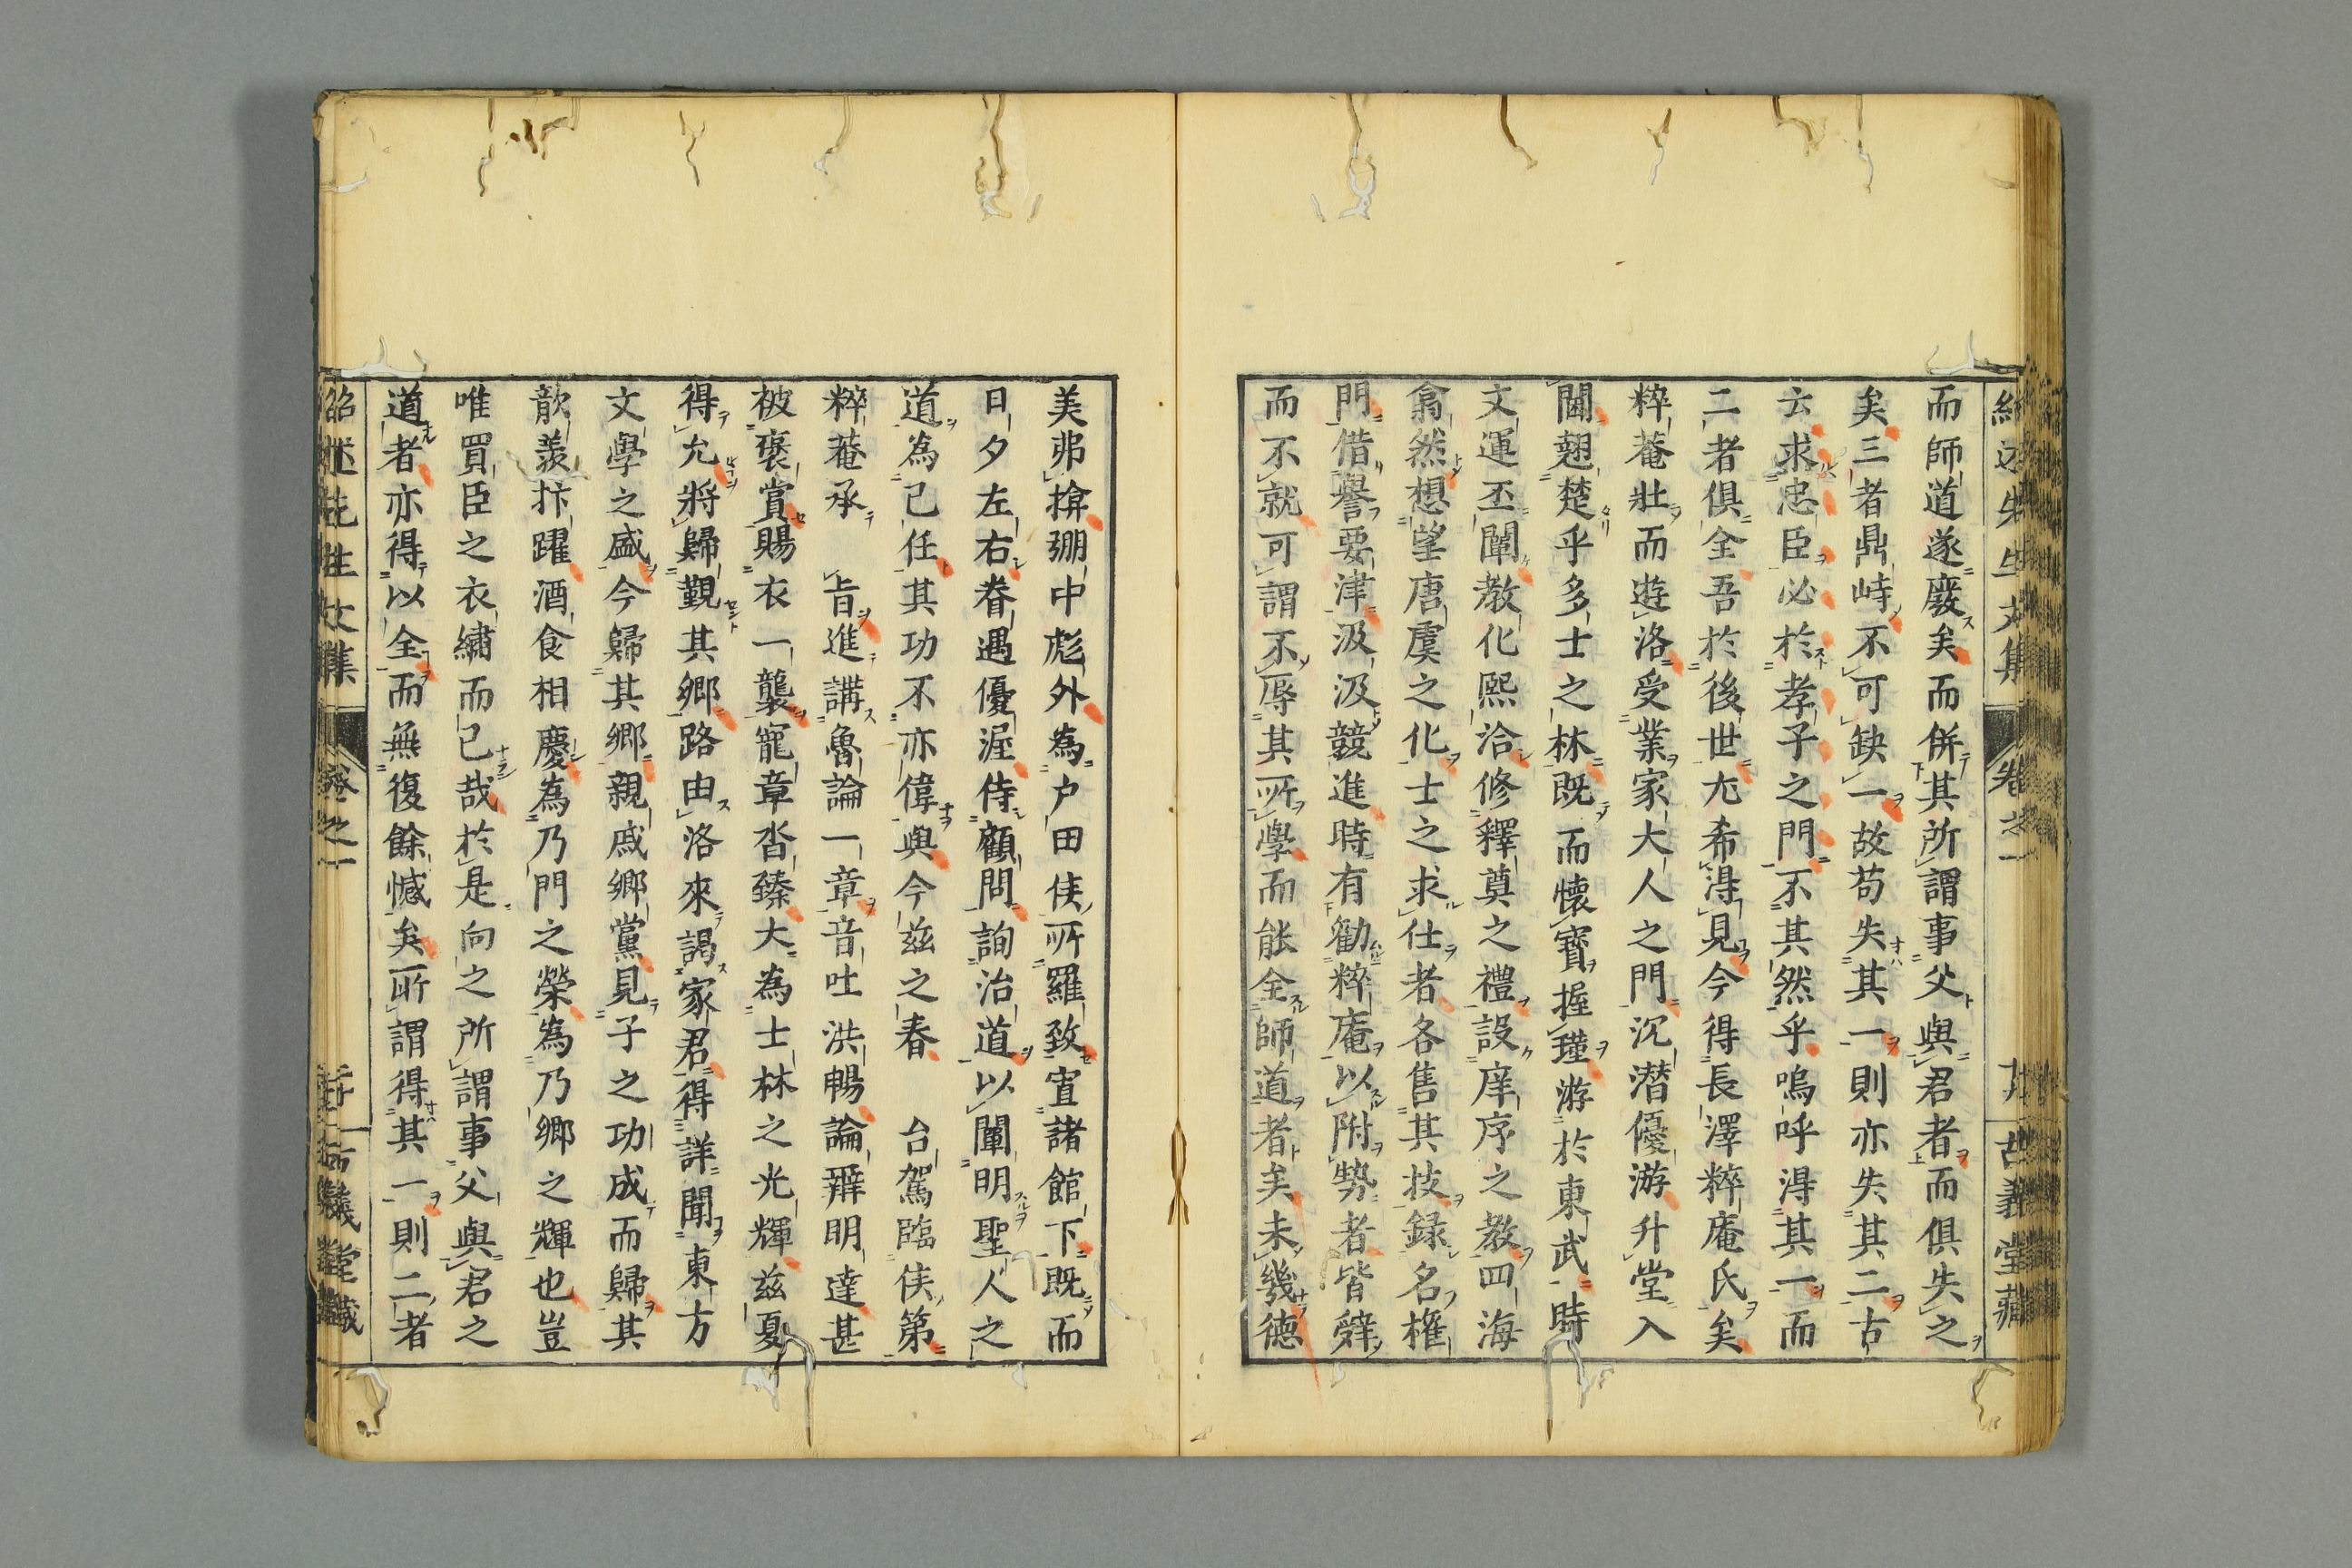 紹述先生文集 卷之一 十九 古義堂藏
而師道遂廢矣而併其所謂事父與君者而俱失之
矣三者鼎峙不可缺一故苟失其一則亦失其二古
云求忠臣必於孝子之門不其然乎嗚呼得其一而
二者俱全吾於後世尤希得見今得長澤粹庵氏矣
粹菴壯而遊洛受業家大人之門沉潜優游升堂入
閫翹楚乎多士之林既而懷寳握瑾游於東武時
文運丕闡教化熙洽修釋奠之禮設庠序之教四海
翕然想望唐虞之化士之求仕者各售其技録名権
門借譽要津汲汲競進時有勸粹庵以附勢者皆辭
而不就可謂不辱其所學而能全師道者矣未幾德
美弗揜弸中彪外為戸田侯所羅致寘諸館下既而
日夕左右眷遇優渥侍顧問詢治道以闡明聖人之
道為己任其功不亦偉與今茲之春 台駕臨侯第
粹菴承 旨進講魯論一章音吐洪暢論辨明達甚
被褒賞賜衣一襲寵章沓臻大為士林之光輝茲夏
得允將歸覲其鄉路由洛來謁家君得詳聞東方
文學之盛今歸其鄉親戚鄉黨見子之功成而歸其
歆羨抃躍酒食相慶為乃門之榮為乃鄉之輝也豈
唯買臣之衣繡而已哉於是向之所謂事父與君之
道者亦得以全而無復餘憾矣所謂得其一則二者
紹述先生文集 卷之一 古義堂藏